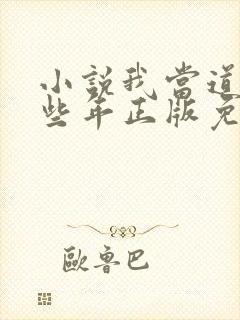 小說我當道
些年正版免
歐魯巴